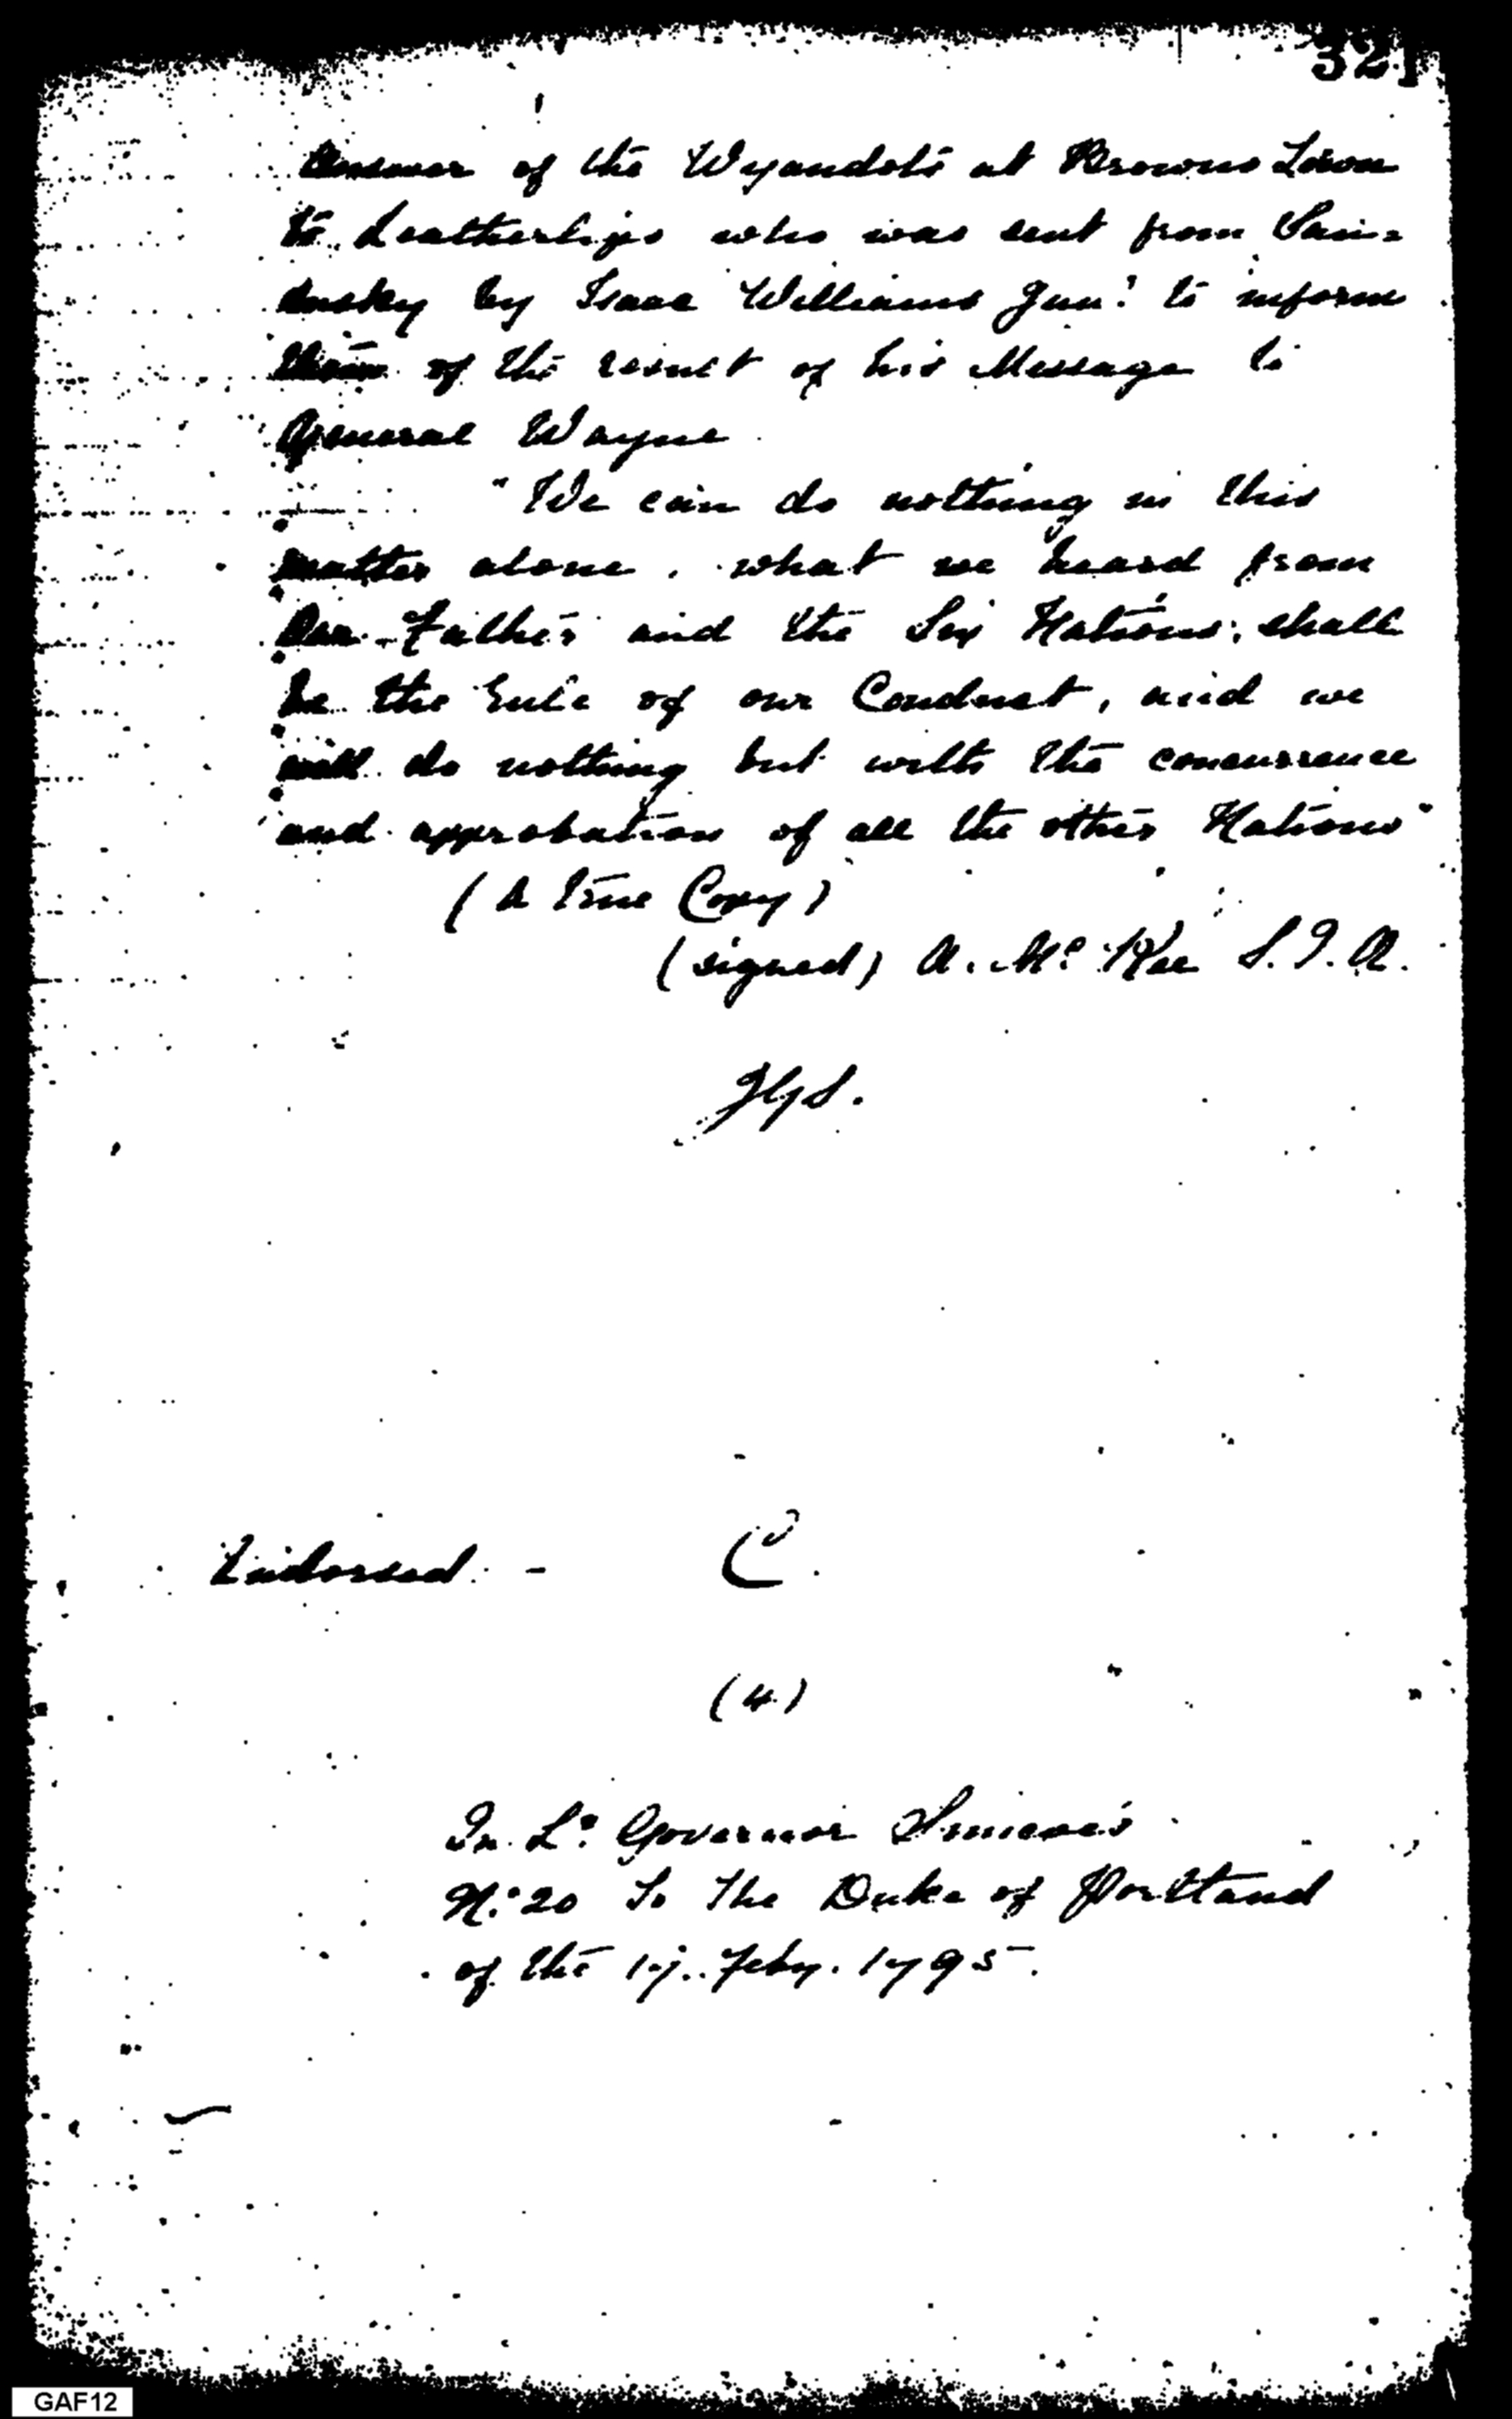 321
Answer of the Wyandots at Browns Town
to Leatherlips who was sent from San=
dusky by Isaac Williams Junr. to inform
them of the result of his Message to
General Wayne
"We can do nothing in this
matter alone, what we heard from
Our Father and the Six Nations, shall
be the rule of our Conduct, and we
will do nothing but with the concurrence
and approbation of all the other Nations"
(A true Copy)
(signed) A. Mc.Kee S.I.A.
JGS.
Endorsed - C.
(4)
In Lt. Governor Simcoe's
No. 20 To The Duke of Portland
of the 17. Feby. 1795.
GAF12